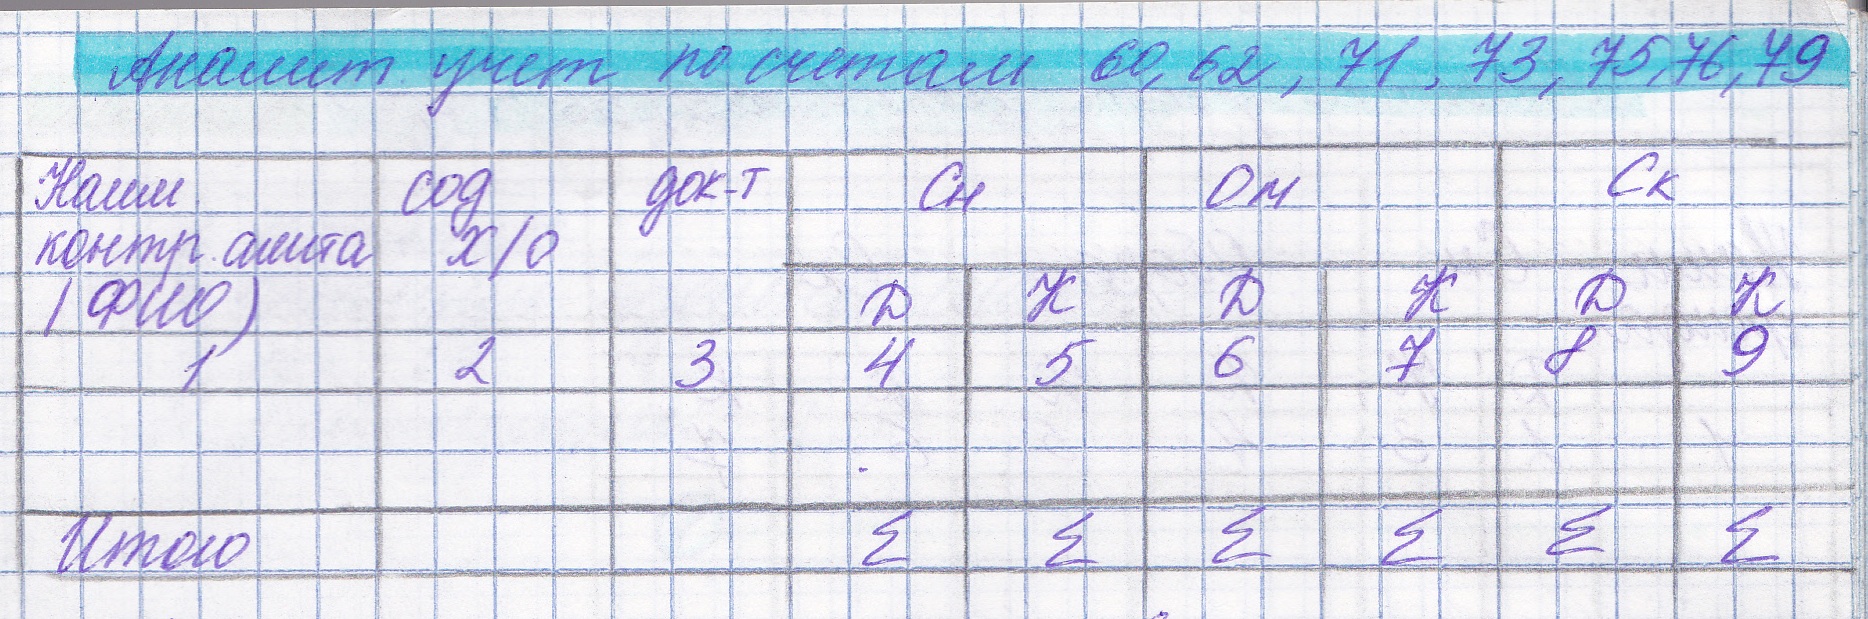 Аналит. учет по счетам 60, 62, 71, 73, 75, 76, 79
Наим сод док-т Сн Ом Ск
контр.агента х/о
(ФИО) Д К Д К Д К
1 2 3 4 5 6 7 8 9
Итого Σ Σ Σ Σ Σ Σ